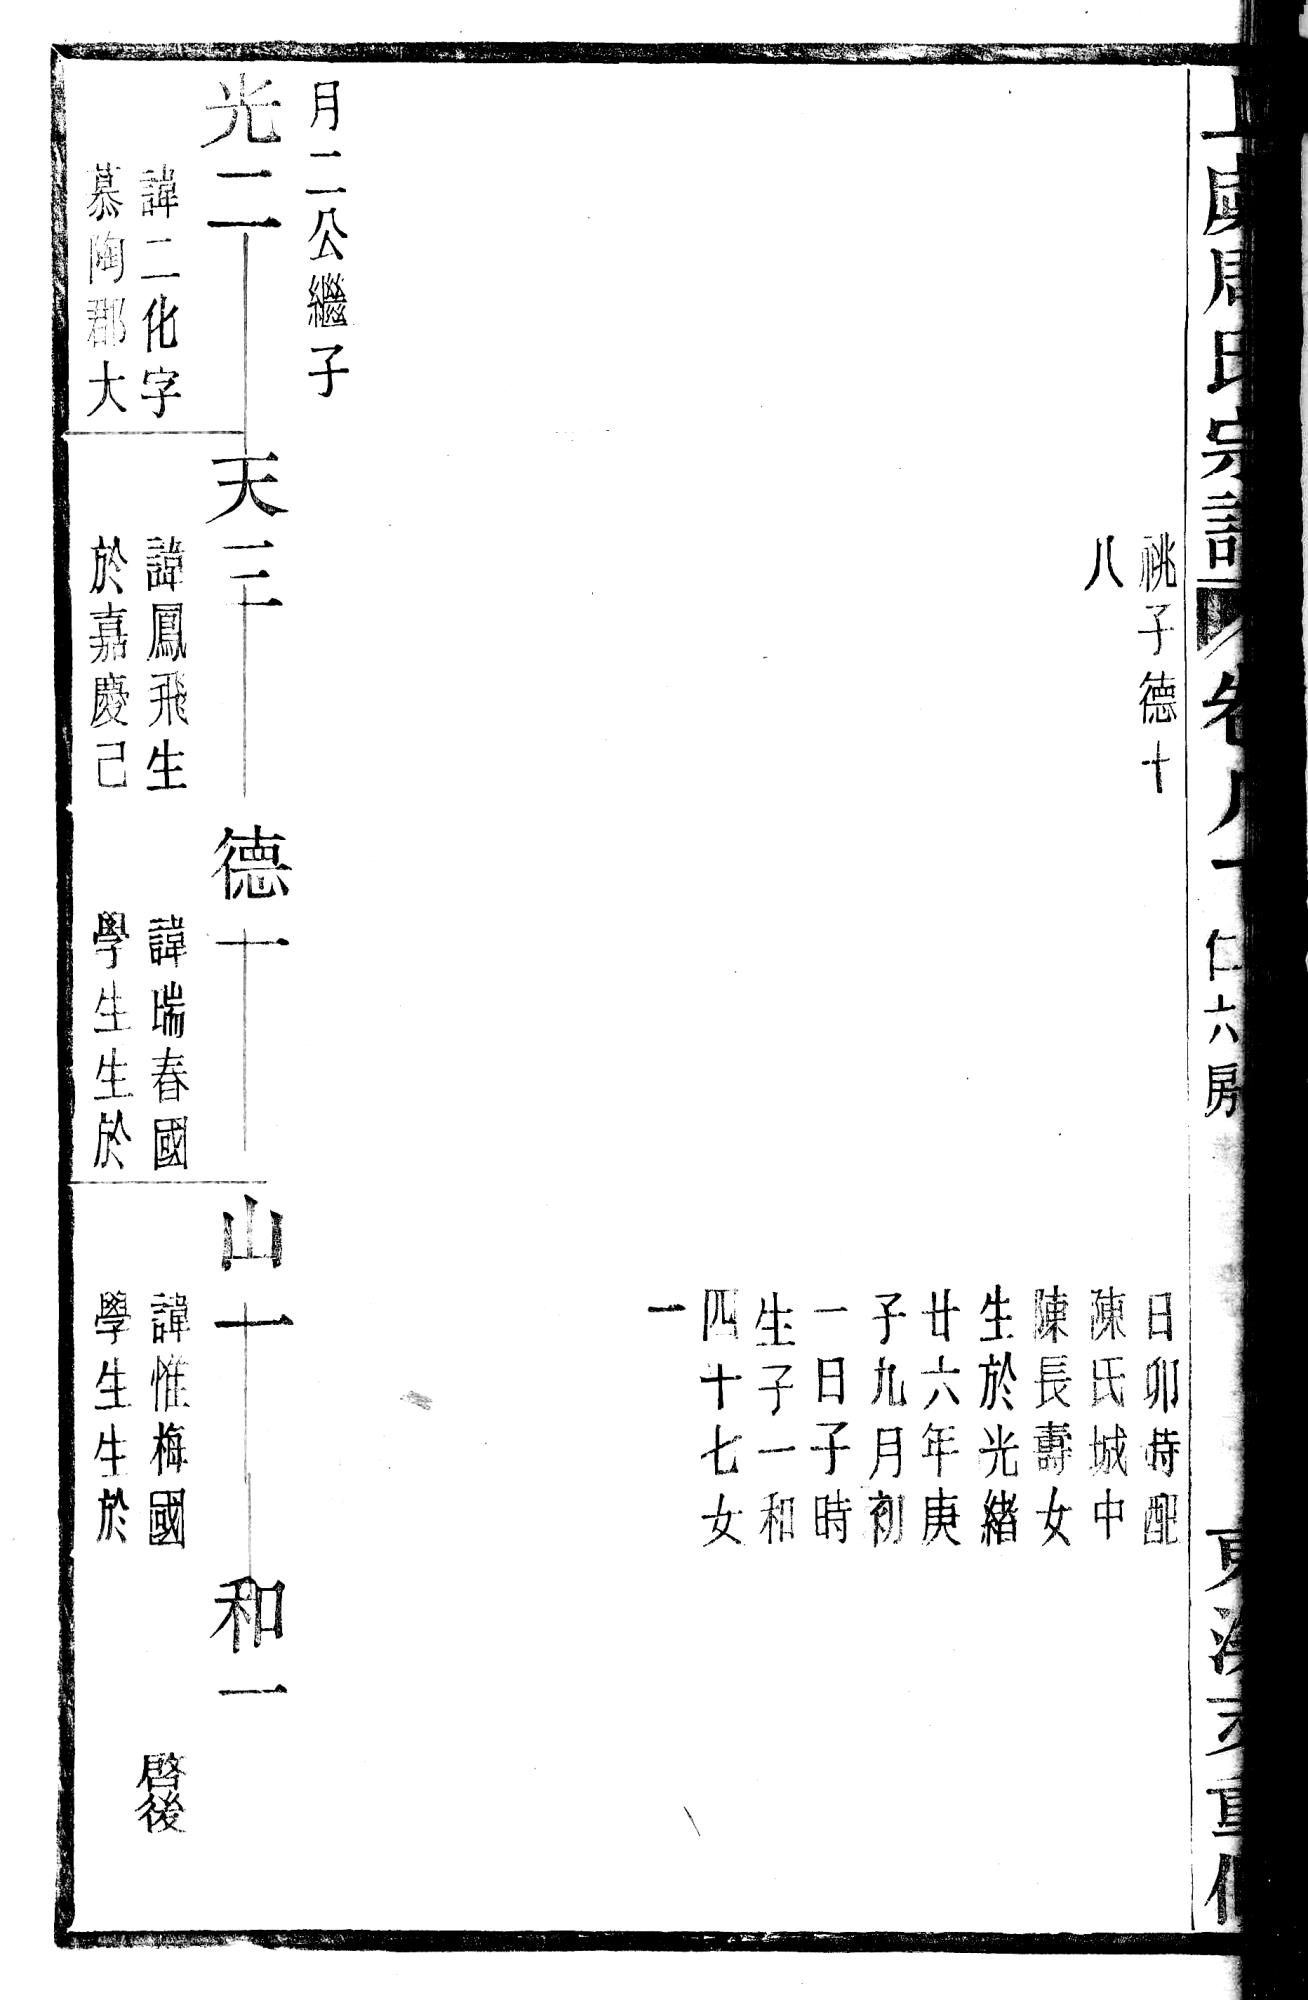 周氏宗譜
仁六房
祧子德十
八
日卯時配
陳氏城中
陳長壽女
生於光緒
廿六年庚
子九月初
一日子時
生子一和
四十七女
一
月二公繼子
光二
諱二化字
慕陶郡大
天三
諱鳳飛生
於嘉慶己
德一
諱瑞春國
學生生於
山一
諱惟梅國
學生生於
和一
啓後